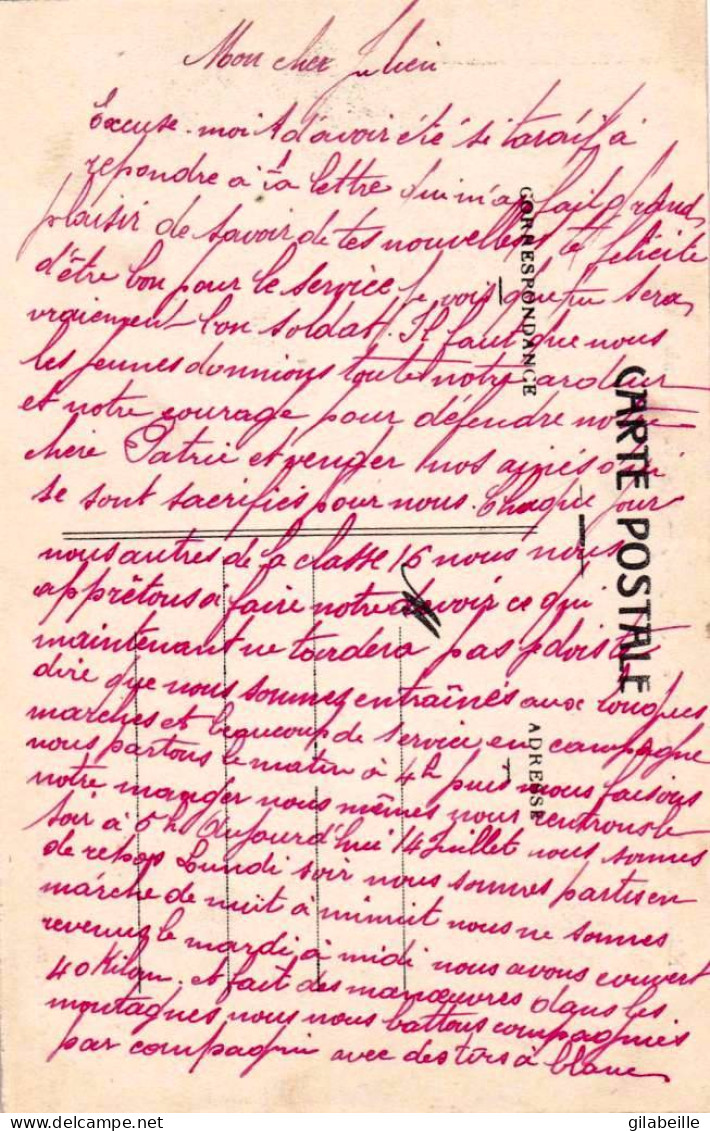 Mon cher Julien
Excuse-moi d'avoir été si tardif à
repondre à ta lettre qui m'a fait grand
plaisir de savoir de tes nouvelles je te felicite
d'être bon pour le service je vois que tu sera
vraiement bon soldat. Il faut que nous
les jeunes donnions toute notre ardeur
et notre courage pour défendre notre
chère Patrie et venger nos ainés qui
se sont sacrifiés pour nous. Chaque jour
nous autres de la classe 16 nous nous
apprêtons à faire notre devoir ce qui
maintenant ne tardera pas je dois te
dire que nous sommes entraînés aux longues
marches et beaucoup de service en campagne
nous partons le matin à 4h puis nous faisons
notre manger nous mêmes nous rentrons le
soir à 5h Aujourd'hui 14 Juillet nous sommes
de repos Lundi soir nous sommes partis en
marche de nuit à minuit nous ne sommes
revenus le mardi à midi nous avons couvert
40 Kilom. et fait des manœuvres dans les
montagnes nous nous battons compagnies
par compagnie avec des tirs à blanc
CORRESPONDANCE
CARTE POSTALE
ADRESSE
gilabeille